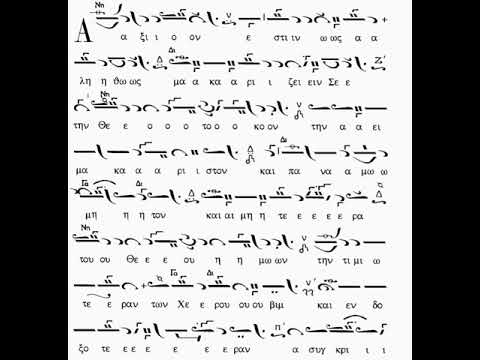 Α α ξι ι ο ον ε στι ιν ω ως α α
λη η θω ως μα α κα α ρι ι ζει ειν Σε ε
την Θε ε ο ο ο το ο ο κο ον την α α ει
μα κα α α ρι ι στον και πα να α μω ω
μη η η τον και αι μη η τε ε ε ε ε ρα
του ου Θε ε ε ου η η μω ων την τι μι ω
τε ε ραν των Χε ε ρου ου ου βιμ και εν δο
ξο τε ε ε ε ε ε ραν α συγ κρι ι ι